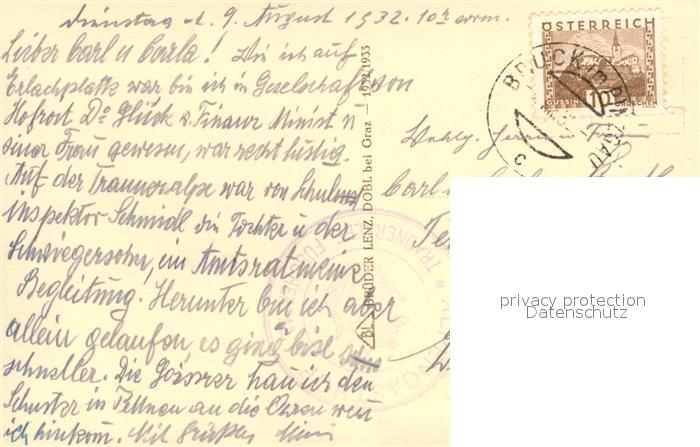 Dienstag d. 9. August 1932. 10h vorm.
Lieber Carl u Carla! Wie ich auf
Erlachplatte war bin ich in Gesellschaft von
Hofrat Dr Glück v. Finanz Minist u
seiner Frau gewesen, war recht lustig.
Auf der Trauneralpe war von Schul
Inspektor Schmidl die Tochter u der
Schwiegersohn, ein Amtsrat meine
Begleitung. Herunter bin ich aber
allein gelaufen es ging bisl
schneller. Die Goiserer hau ich den
Schuster in an die Ohren wen
ich hinkom. Mit Grüßen
BRÜDER LENZ, DOBL bei Graz — 1932/1933
ÖSTERREICH
10
GÜSSING
GROSCHEN
BRUCK im PINZGAU
TRAUNERALPE
Carl
privacy protection
Datenschutz